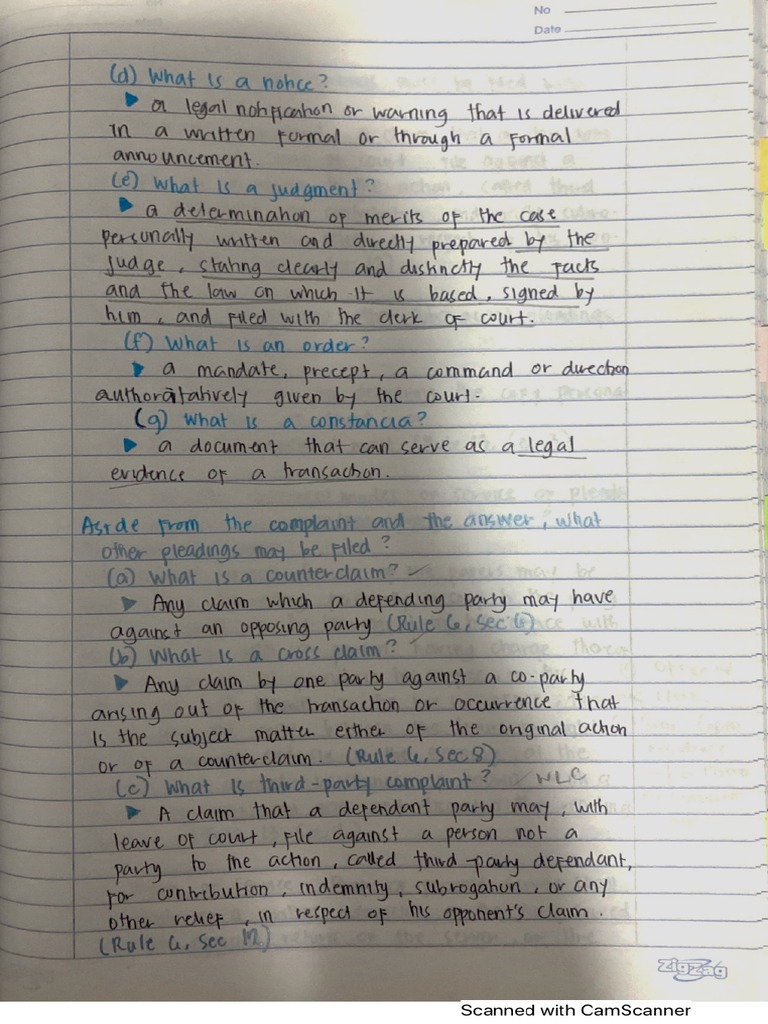 No
Date
(d) What is a notice?
▶ a legal notification or warning that is delivered
in a written formal or through a formal
announcement.
(e) What is a judgment?
▶ a determination of merits of the case
personally written and directly prepared by the
judge, stating clearly and distinctly the facts
and the law on which it is based, signed by
him, and filed with the clerk of court.
(f) What is an order?
▶ a mandate, precept, a command or direction
authoratatively given by the court.
(g) What is a constancia?
▶ a document that can serve as a legal
evidence of a transaction.
Aside from the complaint and the answer, what
other pleadings may be filed?
(a) What is a counterclaim? ✓
▶ Any claim which a defending party may have
against an opposing party (Rule 6, Sec 6)
(b) What is a cross claim?
▶ Any claim by one party against a co-party
arising out of the transaction or occurrence that
is the subject matter either of the original action
or of a counterclaim. (Rule 6, Sec 8)
(c) What is third-party complaint? ✓ WLC
▶ A claim that a defendant party may, with
leave of court, file against a person not a
party to the action, called third-party defendant,
for contribution, indemnity, subrogation, or any
other relief, in respect of his opponent's claim.
(Rule 6, Sec 12)
zigzag
Scanned with CamScanner